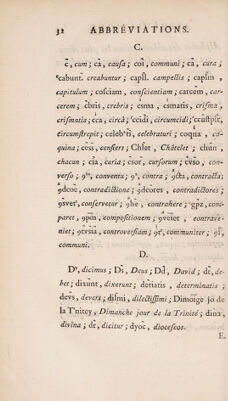 32 ABBRÉVIATIONS.
C.
c̄, cum; cā, causa; coī, communi; cā, cura;
cabunt̄. creabuntur; capſł. campellis; capłm,
capitulum; coſciam, conſcientiam; carcēm, car-
cerem; c̄bris, crebris; csma, csmatis, criſma,
criſmatis; cca, circà; ccidi, circumcidi;
circumſtrepit; celebr̄ti, celebraturi; coqna, co-
quina; cēſſ, cenſiers; Chłet, Châtelet; chūn,
chacun; cia, curia; cſor, curſorum; cvſo, con-
verſo; 9ᵗᵘ, conventu; 9ᵃ, contra; 9cta, contracta;
9dcoē, contradictione; 9dcores, contradictores;
9ſvet, conſervetur; 9hē, contrahere; 9p̄ȝ, com-
paret, 9pōn, compoſitionem; 9vēiet, contravè-
niet; 9tvſia, controverſiam; 9iᵗ, communiter; 9i,
communi.
D.
Dˢ, dicimus; Ds̄, Deus; Dd̄, David; dē, de-
bet; dixūnt, dixerunt; detiatis, determinatis;
devs, devers; diſmi, dilectiſſimi; Dimoige jo de
la Tnitey, Dimanche jour de la Trinité; dīna,
divina; dr̄, dicitur; dyoc̄, dioceſeos.
E.